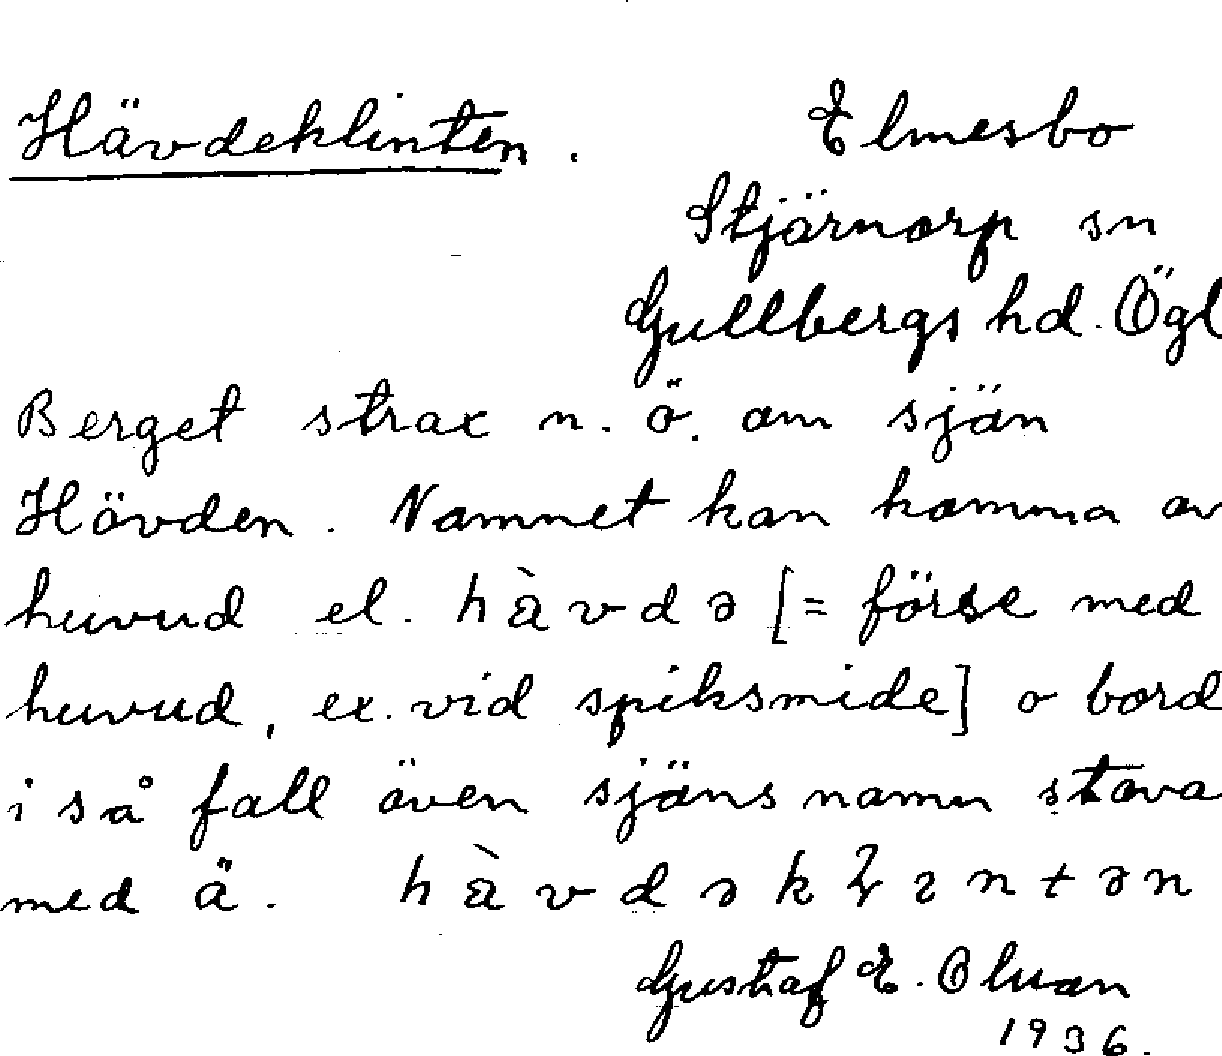 Hävdeklinten. Elmesbo
Stjärnorp sn
Gullbergs hd. Ögl
Berget strax n. ö. om sjön
Hövden. Namnet kan komma av
huvud el. [= förse med
huvud, ex. vid spiksmide] o bord
i så fall även sjöns namn stava
med ä.
Gustaf E.
1936.